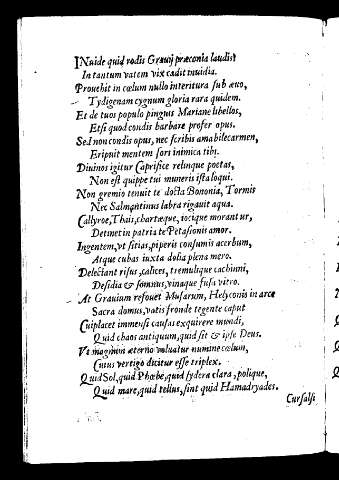 INuide quid rodis Grauij præconia laudis?
In tantum vatem vix cadit inuidia.
Prouehit in cœlum nullo interitura sub æuo,
Tydigenam cygnum gloria rara quidem.
Et de tuos populo pinguis Mariane libellos,
Etsi quod condis barbare profer opus.
Sed non condis opus, nec scribis amabile carmen,
Eripuit mentem sors inimica tibi.
Diuinos igitur Caprifice relinque poetas,
Non est quippe tui muneris ista loqui.
Non gremio tenuit te docta Bononia, Tormis
Nec Salmantinus labra rigauit aqua.
Callyroe, Thais, chartæque, iocique morantur,
Detinet in patria te Petasionis amor.
Ingentem, vt sitias, piperis consumis aceruum,
Atque cubas iuxta dolia plena mero.
Delectant risus, calices, tremulique cachinni,
Desidia & somnus, vinaque fusa vitro.
At Grauium refouet Musarum, Helyconis in arce
Sacra domus, vatis fronde tegente caput
Cui placet immensi causas exquirere mundi,
Quid chaos antiquum, quid sit & ipse Deus.
Vt magnum æterno voluatur numine cœlum,
Cuius vertigo dicitur esse triplex.
Quid Sol, quid Phœbe, quid sydera clara, polique,
Quid mare, quid tellus, sint quid Hamadryades.
Cur salsi